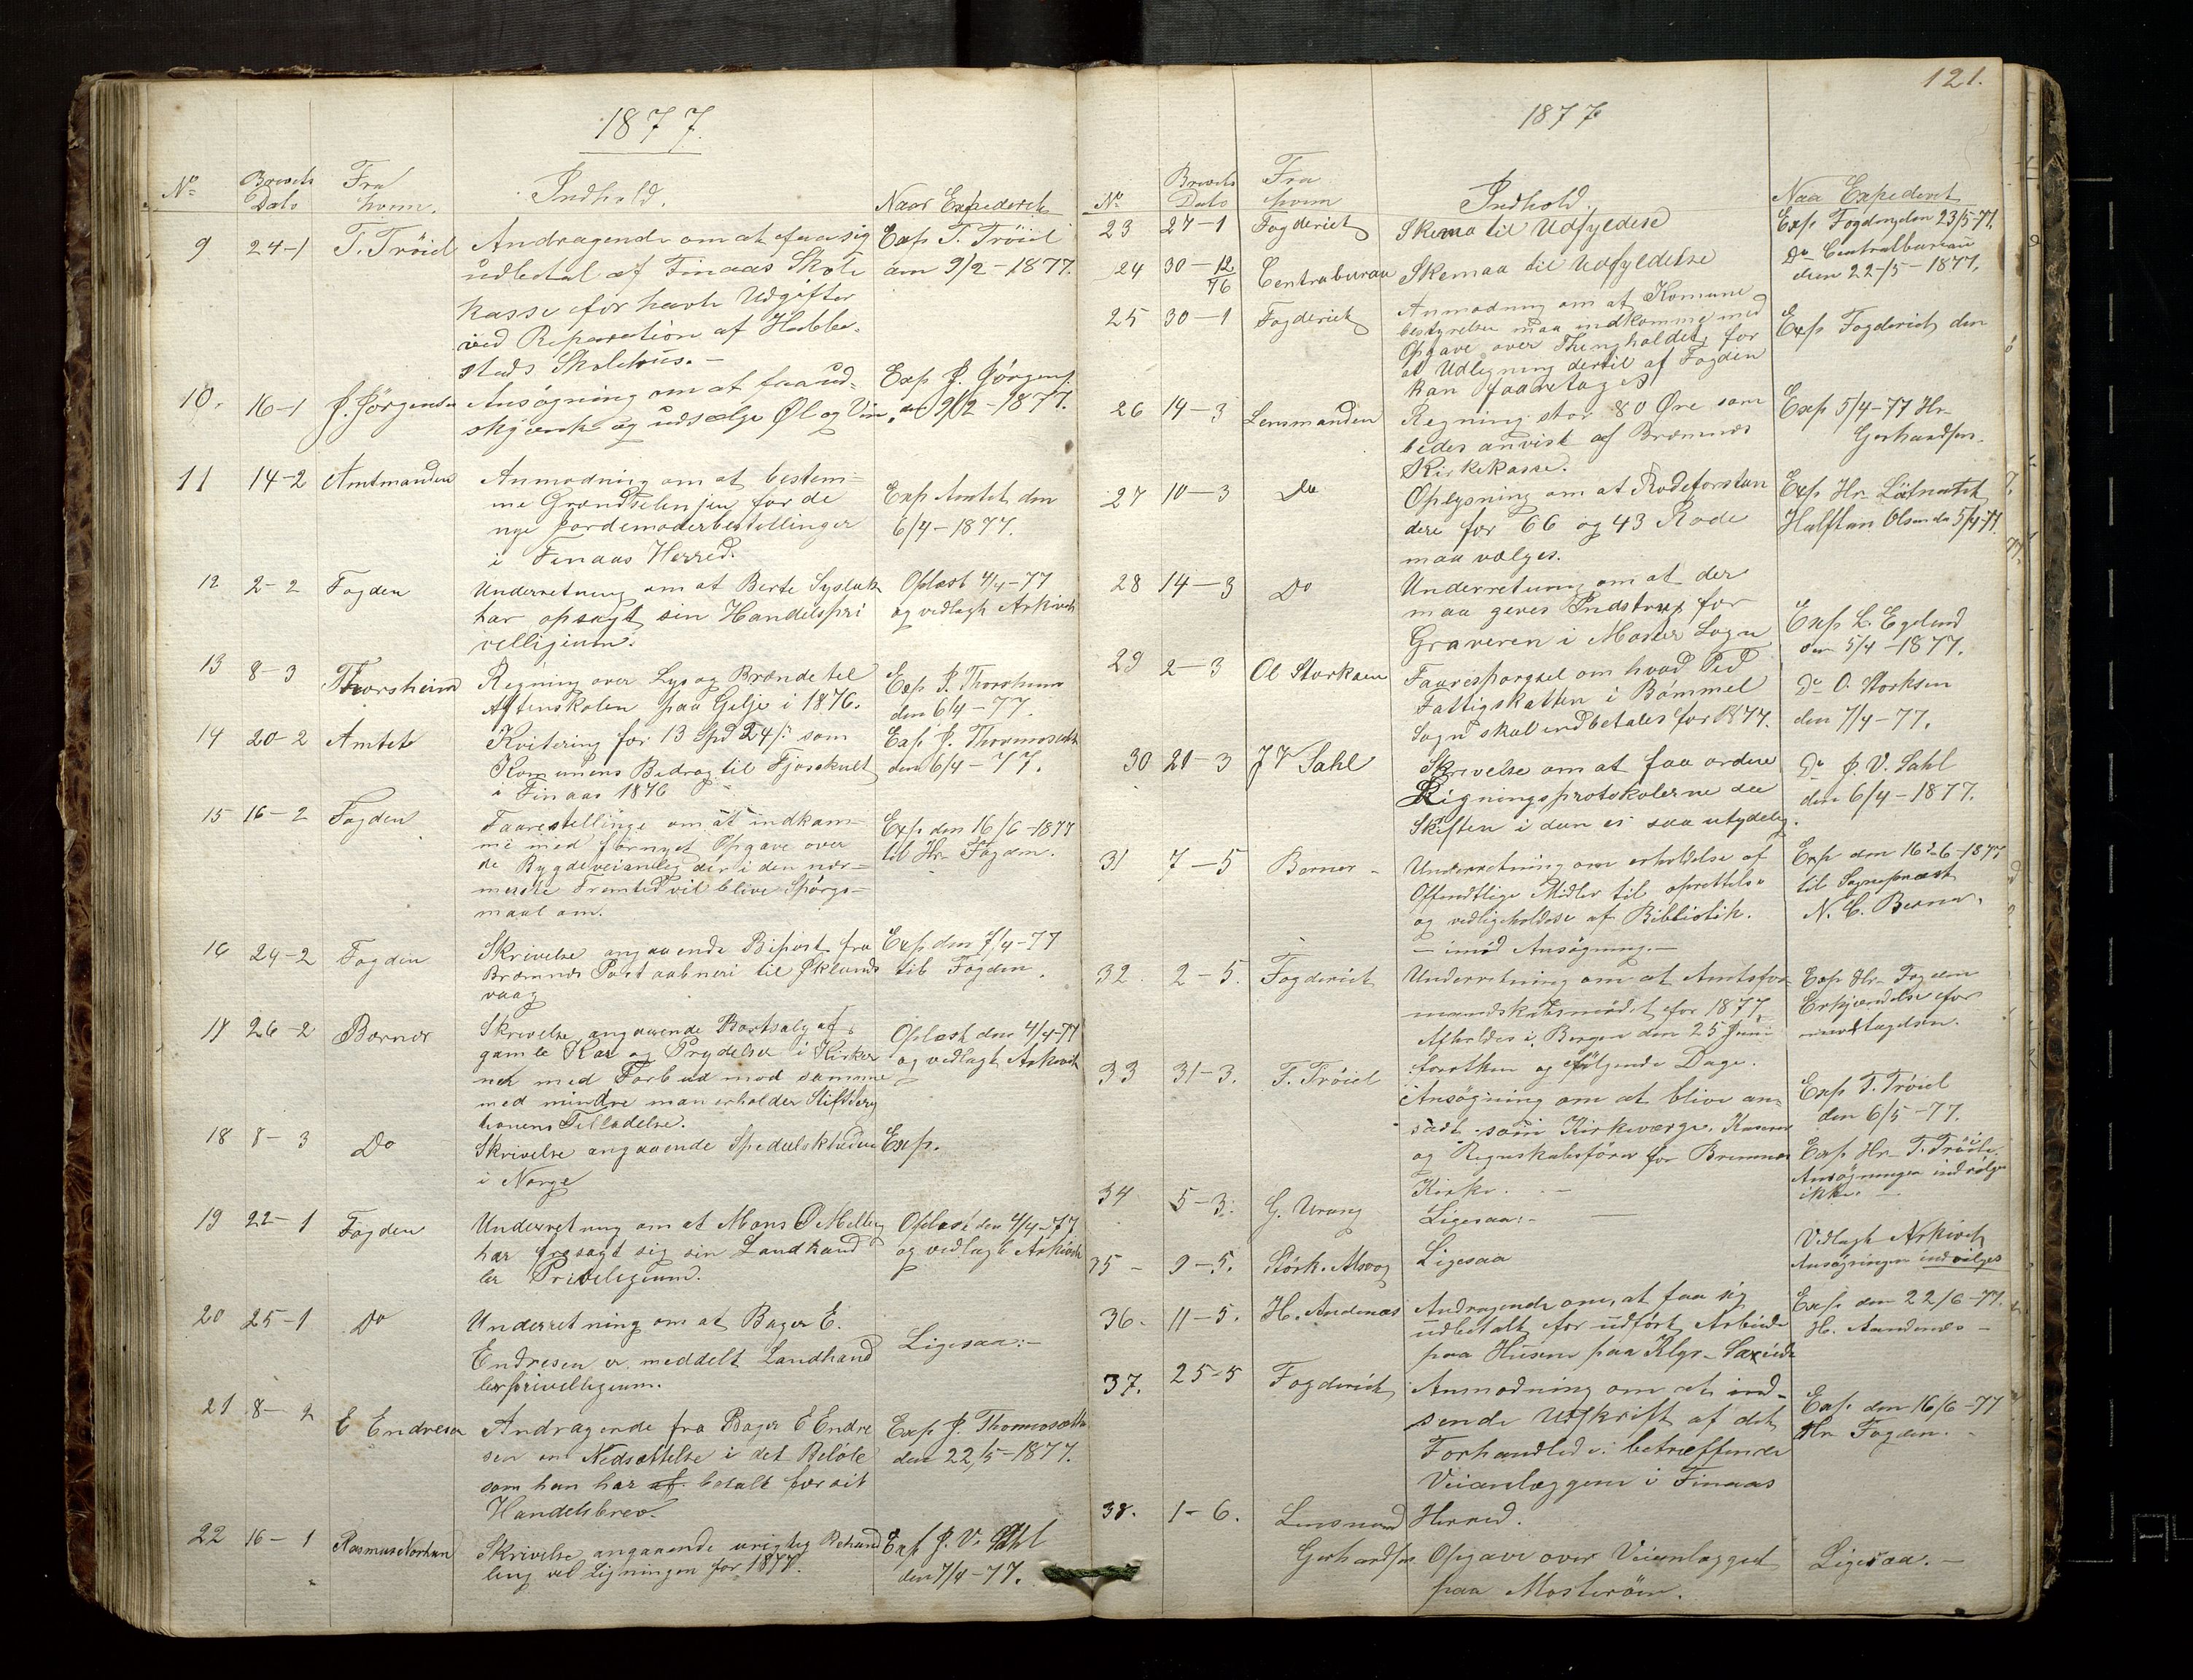 1877.
No Brevets Dato Fra hvem. Indhold. Naar Expederet
9 24-1 T. Tröiel Andragende om at faa sig Exp T. Tröiel
udbetal af Finaas Skole den 9/2-1877.
kasse for havte Udgifter
ved Reparation af Hobbe-
stads Skolehus.-
10. 16-1 J. Jörgensen Ansögning om at faa ud- Exp J. Jörgens.
skjænk og udsælge Øl og Vin. den 9/2-1877.
11 14-2 Amtmanden Anmodning om at bestem-
me Grændselinjen for de Exp Amtet den
nye Jordemoderbestillinger 6/4-1877.
i Finaas Herred.
12 2-2 Fogden Underretning om at Berte Syslak Oplæst 4/4-77
har opsagt sin Handelspri og vedlagt Arkivet
velligium.
13 8-3 Thorsheim Regning over Lys og Brænde til Exp J. Thorsheim
Aftenskolen paa Gilje i 1876. den 6/4-77.
14 20-2 Amtet Kvitering for 13 Spd 24 ß som Exp J. Thormosæth
Komunens Bidrag til den 6/4-77.
i Finaas 1876
15 16-2 Fogden Faarestellinge om at indkom-
me med fornyet Opgave over Exp den 16/6-1877
de Bygdeveianlæg der i den nær- til Hr. Fogden.
meste Fremtid vil blive Spörgs-
maal om.
16 24-2 Fogden Skrivelse angaaende Bipost fra Exp den 7/4-77
Bræmnes Postaabneri til Øklands til Fogden.
vaag
17 26-2 Børner Skrivelse angaaende Bortsalg af Oplæst den 4/4-77
gamle Kar og Prydelser i Kirker og vedlagt Arkivet
ner med Forbud mod samme
med mindre man erholder Stiftdireg
tionens Tilladelse.
18 8-3 Do Skrivelse angaaende Spedalskheden Exp.
i Norge
19 22-1 Fogden Underretning om at Mons O Melling Oplæst den 4/4-77
har frasagt sig sin Landhand og vedlagt Arkivet
ler Privelegium.
20 25-1 Do Underretning om at Bager E.
Endresen er meddelt Landhand Ligesaa:-
lerprivellegium.
21 8-2 E Endresen Andragende fra Bager E Endre Exp J. Thormosæth
sen om Nedsættelse i det Belöb den 22/5-1877.
som han har af betalt for sit
Handelsbrev.
22 16-1 Rasmus Skrivelse angaaende urigtig Behand Exp J. V. Sahl
ling ved Ligningen for 1877. den 7/4-77.
121.
1877
No Brevets Dato Fra hvem Indhold. Naa Expederet
23 27-1 Fogderiet Skema til Udfyldese Exp Fogden den 23/5-77.
24 30-12/76 Centraburau Skemaa til Udfyldelse Do Centralbureau
den 22-5-1877.
25 30-1 Fogderiet Anmodning om at Komune
bestyrelsen maa indkomme med Exp Fogderiet den
Opgave over Thingholdet, for
at Udligning dertil af Fogden
kan faaretages.
26 14-3 Lensmanden Regning stor 80 Øre som Exp 5/4-77 Hr.
bedes anvist af Bræmnes Gerhardsen.
Kirkekasse.
27 10-3 Do Oplysning om at Rodeforstan Exp Hr.
dere for 66 og 43 Rode Halftan Olsen den 5/4-77.
maa vælges.
28 14-3 Do Underretning om at der
maa geves Indstrux for Exp L. Egelund
Graveren i Moster Sogn den 5/4-1877.
29 2-3 Ol Storksen Faaresporgsel om hvad Tid
Fattigskatten i Bömmel Do O. Storksen
Sogn skal indbetales for 1877. den 7/4-77.
30 21-3 J V Sahl Skrivelse om at faa ordne Do J. V. Sahl
Ligningsprotokolerne da den 6/4-1877.
Skriften i dem er saa utydelig.
31 7-5 Børner - Underretning om erholdelse af Exp den 16-6-1877
Offendtlige Midler til oprettelse til Sognepræst
og vedligeholdese af Bibliotik. N. C. Børner.
- imod Ansögning.-
32. 2-5. Fogderiet Underretning om at Amtsfor Exp Hr. Fogden
mandskabsmödet for 1877 Erkjendelse for
Afholdes i Bergen den 25 Juni modtagelsen.
33 31-3. T. Tröiel förstkm og fölgende Dage.
Ansögning om at blive an- Exp T. Tröiel
sadt som Kirkeværge, Kaserer den 6/5-77.
og Regnskabsförer for Bremnes Exp Hr. T. Tröiel
Kirke. - Ansögningen indvilges
34 5-3. G. Urang Ligesaa:- ikke. -
35 - 9-5. Störk. Alsvog Ligesaa Vedlagt Arkivet
Ansögningen indvilges
36. 11-5. H. Andenæs Andragende om, at faa sig Exp den 22/6-77.
udbetalt for udfört Arbeide H. Aandenæs -
paa Husene paa Klgr.
37. 25-5 Fogderiet Anmodning om at ind-
sende Udskrift af det Exp den 16/6-77
Forhandlede: betræffende Hr. Fogden. -
Veianlæggene i Finaas
38. 1-6. Lensmand Herred.
Gerhardsen Opgave over Veianlægget Ligesaa. -
paa Mosteröen.